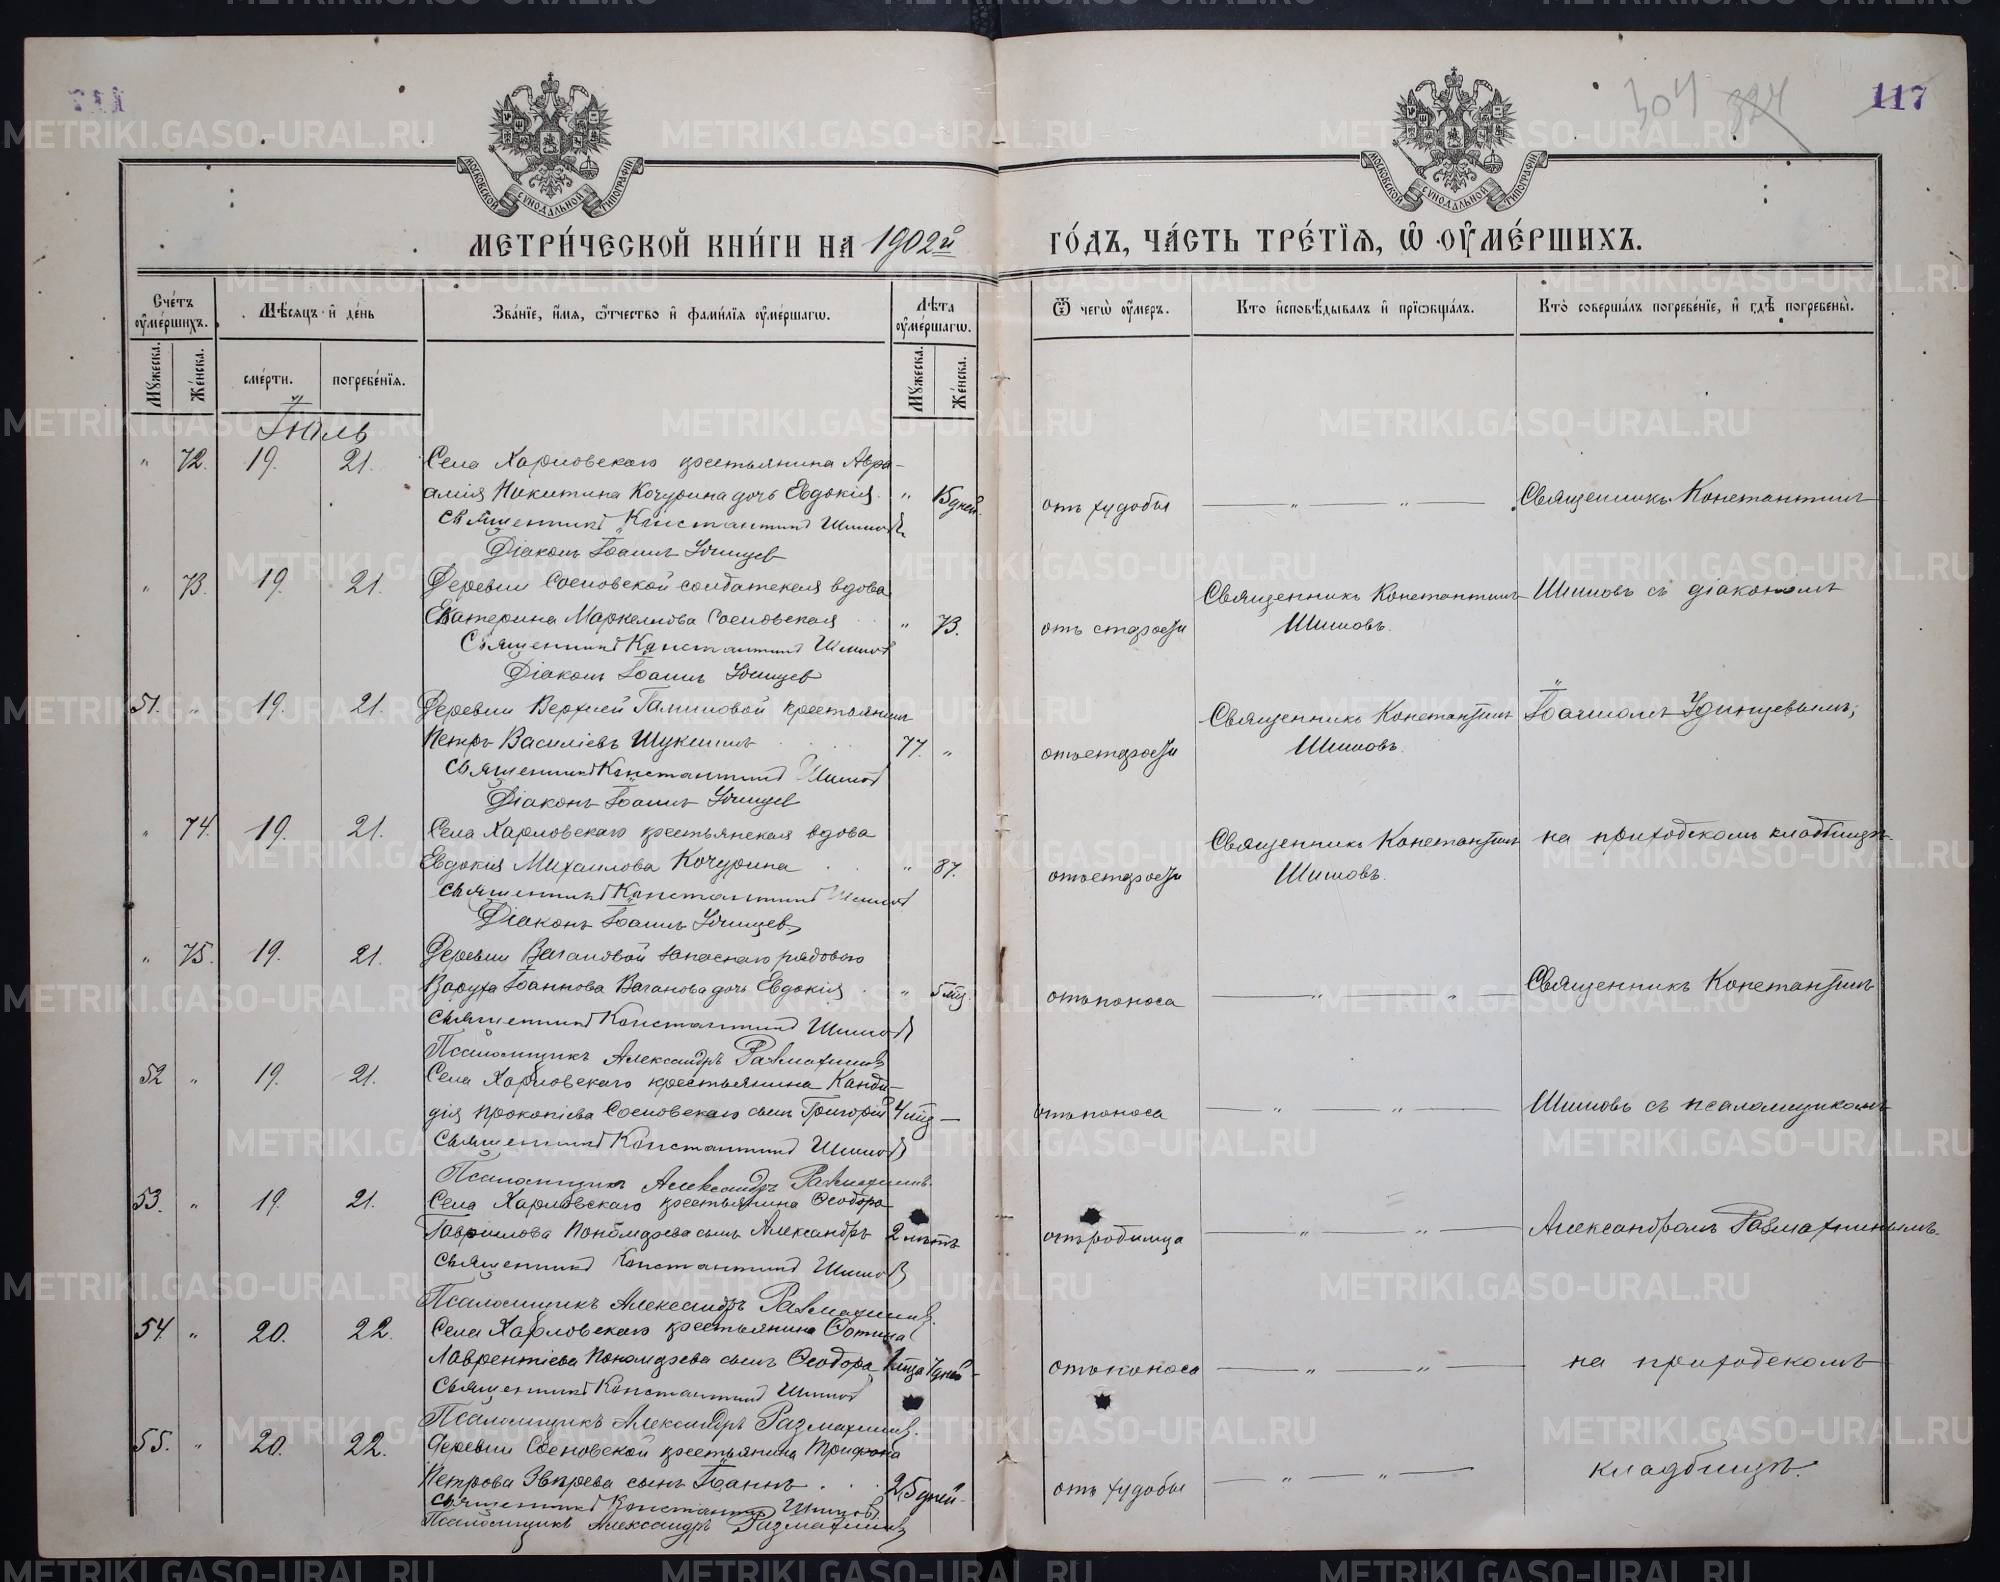 117
304
324
МОСКОВСКОЙ СѴНОДАЛЬНОЙ ТИПОГРАФІИ
МОСКОВСКОЙ СѴНОДАЛЬНОЙ ТИПОГРАФІИ
МЕТРИ́ЧЕСКОЙ КНИ́ГИ НА 1902й ГО́ДЪ, ЧА́СТЬ ТРЕ́ТІѦ, Ѡ ОУ҆МЕ́РШИХЪ.
Сче́тъ оу҆ме́ршихъ.
Мѣ́сяцъ и҆ де́нь
Зва́ніе, и҆́мя, ѻ҆́тчество и҆ фами́лія оу҆ме́ршагѡ.
Лѣ́та оу҆ме́ршагѡ.
Ѿ чегѡ̀ оу҆́меръ.
Кто̀ и҆сповѣ́дывалъ и҆ прїѡбща́лъ.
Кто̀ соверша́лъ погребе́ніе, и҆ гдѣ̀ погребены̀.
Мꙋ́жеска.
Же́нска.
сме́рти.
погребе́нія.
Мꙋ́жеска.
Же́нска.
Іюль
" 72. 19. 21. Села Харловскаго крестьянина Авра-
амія Никитина Кочурина дочь Евдокія. " 15 дней. отъ худобы — " — " — Священникъ Константинъ
Священникъ Константинъ Шишовъ
Діаконъ Іоаннъ Удинцев
" 73. 19. 21. Деревни Сосновской солдатская вдова
Екатерина Маркеллова Сосновская " 73. отъ старости Священникъ Константинъ Шишовъ. Шишовъ съ діакономъ
Священникъ Константинъ Шишов
Діаконъ Іоаннъ Удинцев
51. " 19. 21. Деревни Верхней Галишовой крестьянинъ
Петръ Василіевъ Щукинъ 77. " отъ старости Священникъ Константинъ Шишовъ. Іоанномъ Удинцевымъ,
Священникъ Константинъ Шишов
Діаконъ Іоаннъ Удинцев
" 74. 19. 21. Села Харловскаго крестьянская вдова
Евдокія Михаилова Кочурина " 87. отъ старости Священникъ Константинъ Шишовъ. на приходскомъ кладбищѣ
Священникъ Константинъ Шишов
Діаконъ Іоаннъ Удинцев
" 75. 19. 21. Деревни Вагановой запаснаго рядового
Варуха Іоаннова Ваганова дочь Евдокія " 5 мц. отъ поноса — " — " — Священникъ Константинъ
Священникъ Константинъ Шишов
Псаломщикъ Александръ Размахнинъ
52 " 19. 21. Села Харловскаго крестьянина Канди-
дія Прокопіева Сосновскаго сынъ Григорій 4 мц — отъ поноса — " — " — Шишовъ съ псаломщикомъ
Священникъ Константинъ Шишов
Псаломщикъ Александръ Размахнинъ.
53. " 19. 21. Села Харловскаго крестьянина Ѳеодора
Гавриилова Пономарева сынъ Александръ 2 лѣтъ отъ родимца — " — " — Александромъ Размахнинымъ.
Священникъ Константинъ Шишов
Псаломщикъ Александръ Размахнинъ.
54. " 20. 22. Села Харловскаго крестьянина Фотина
Лаврентіева Пономарева сынъ Ѳеодоръ отъ поноса — " — " — на приходскомъ
Священникъ Константинъ Шишов
Псаломщикъ Александръ Размахнинъ.
55. " 20. 22. Деревни Сосновской крестьянина Трифона
Петрова Звѣрева сынъ Іоаннъ 25 дней. отъ худобы — " — " — кладбищѣ.
Священникъ Константинъ Шишовъ.
Псаломщикъ Александръ Размахнинъ
METRIKI.GASO-URAL.RU